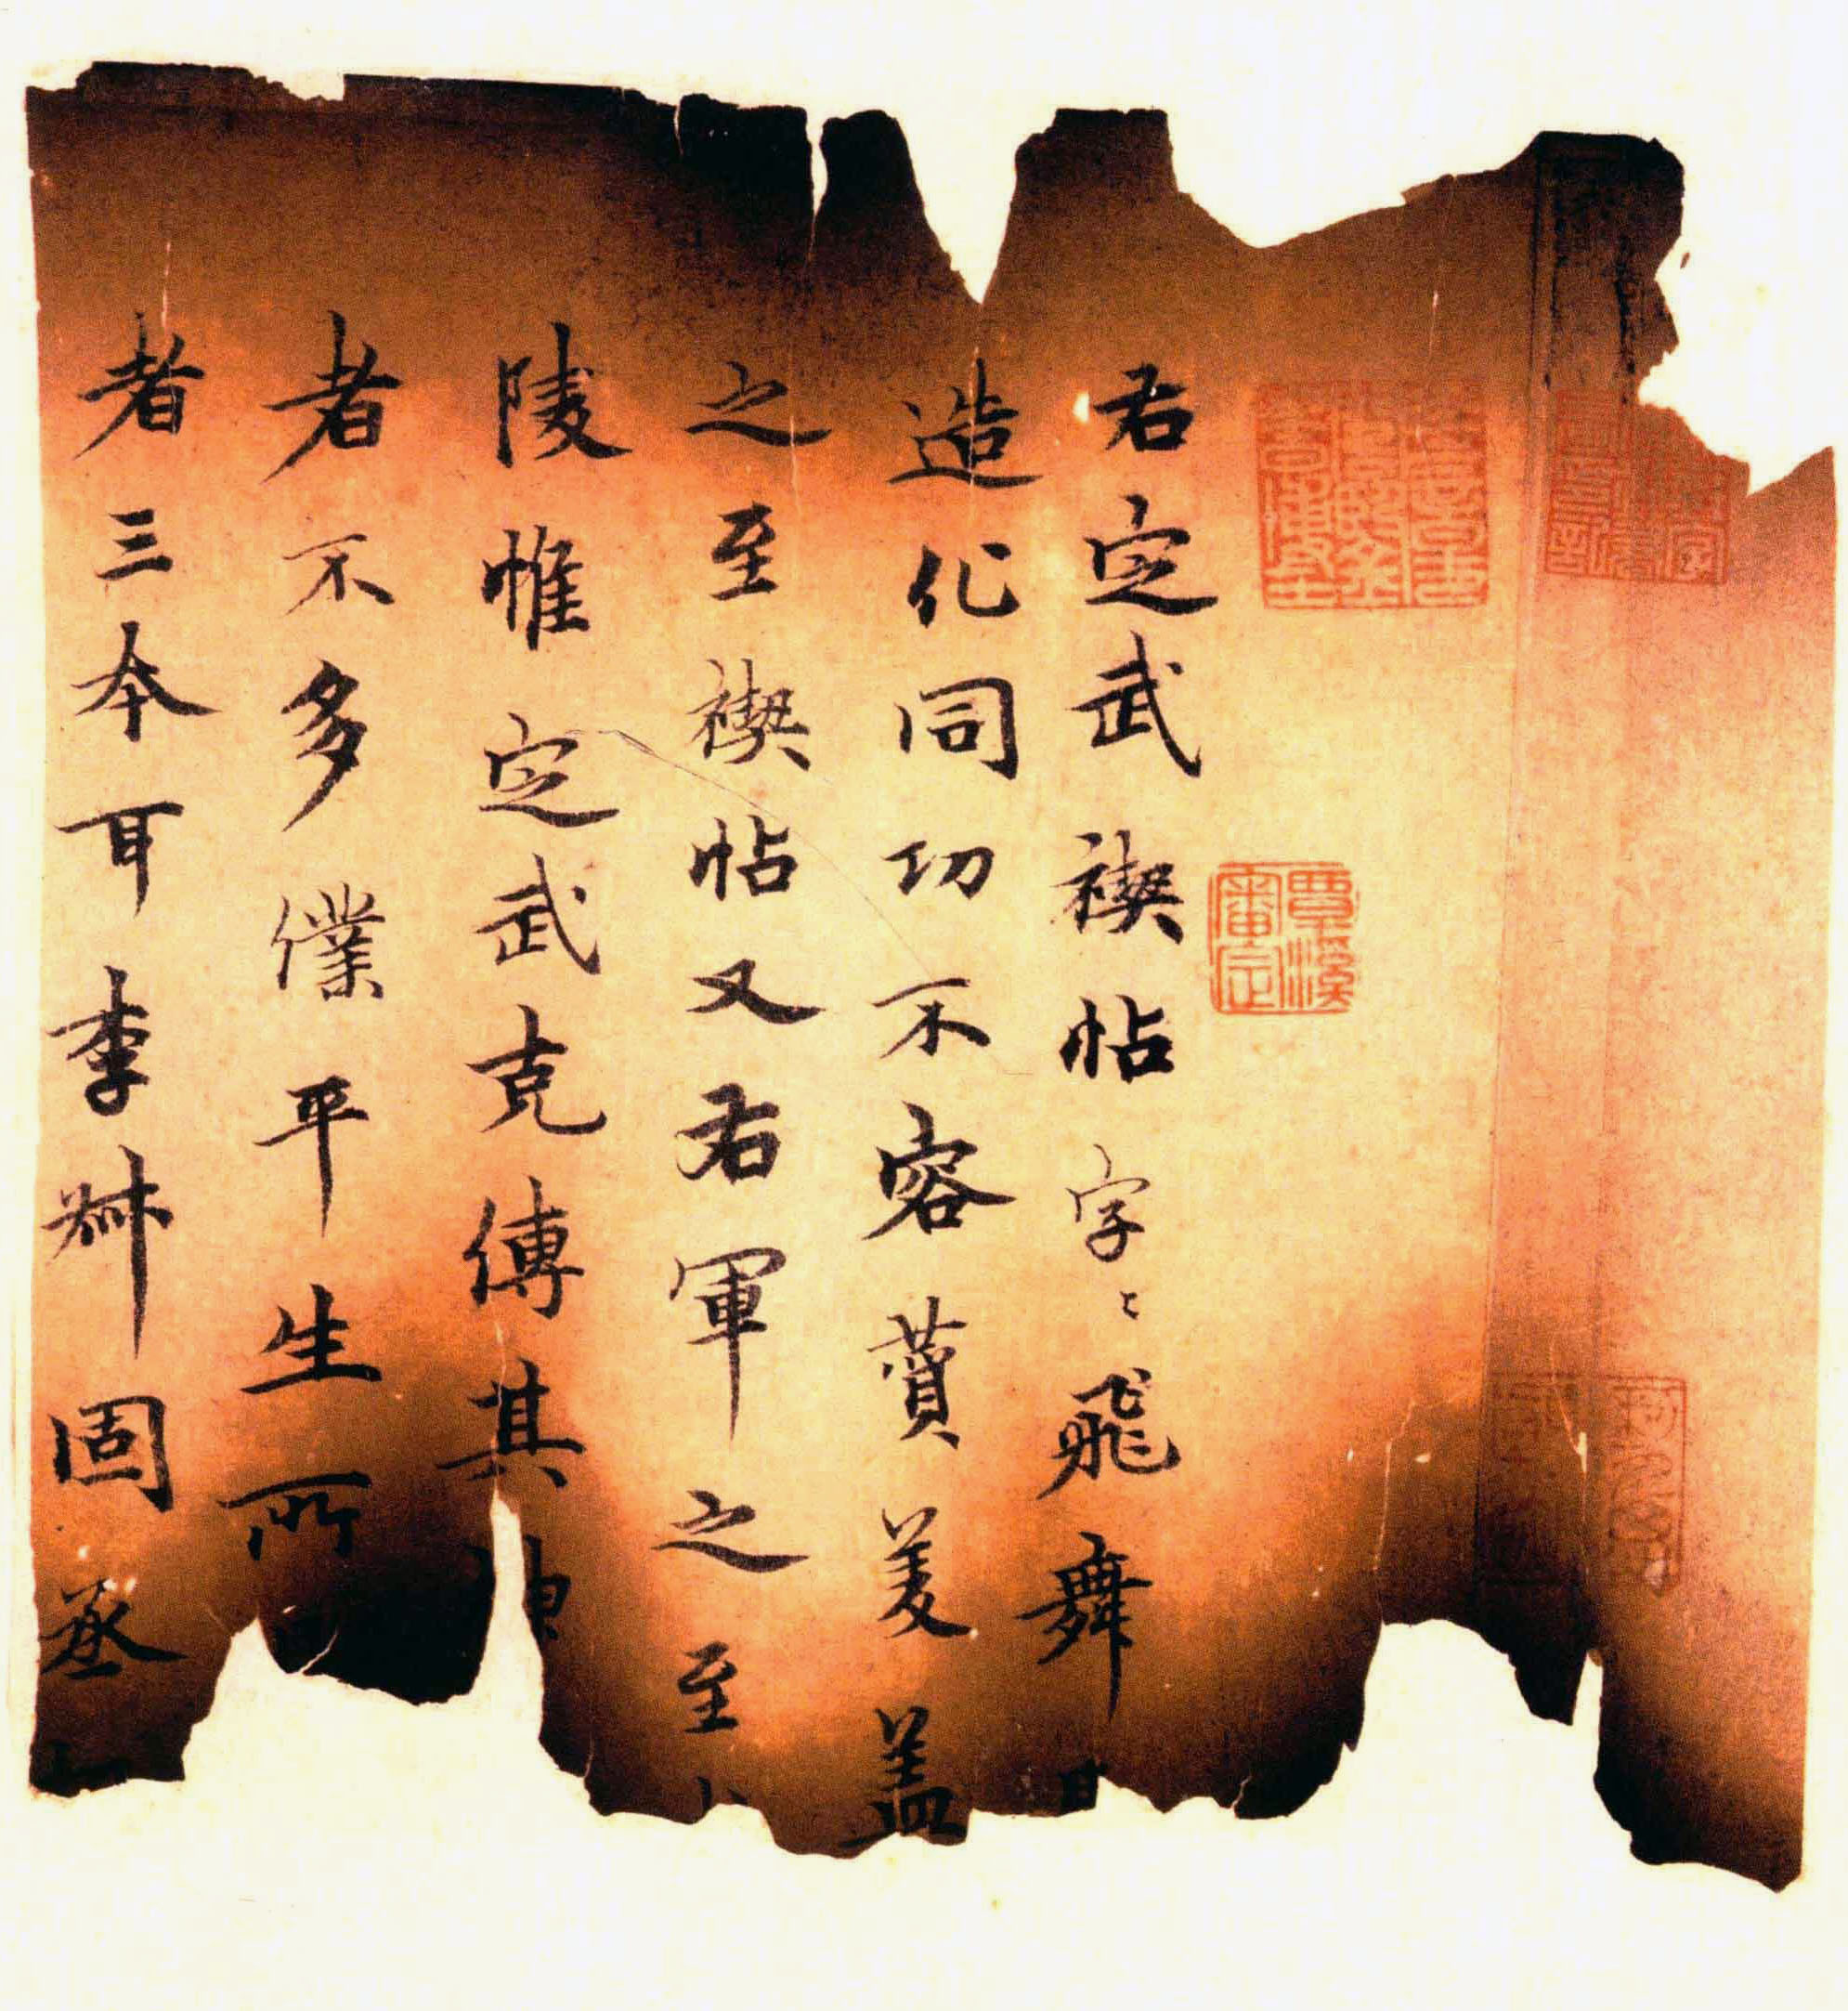 右定武禊帖字〻飛舞
造化同功不容賛美蓋
之至禊帖又右軍之至
陵惟定武克傳其神
者不多僕平生所
者三本耳李叔固丞
覃溪審定